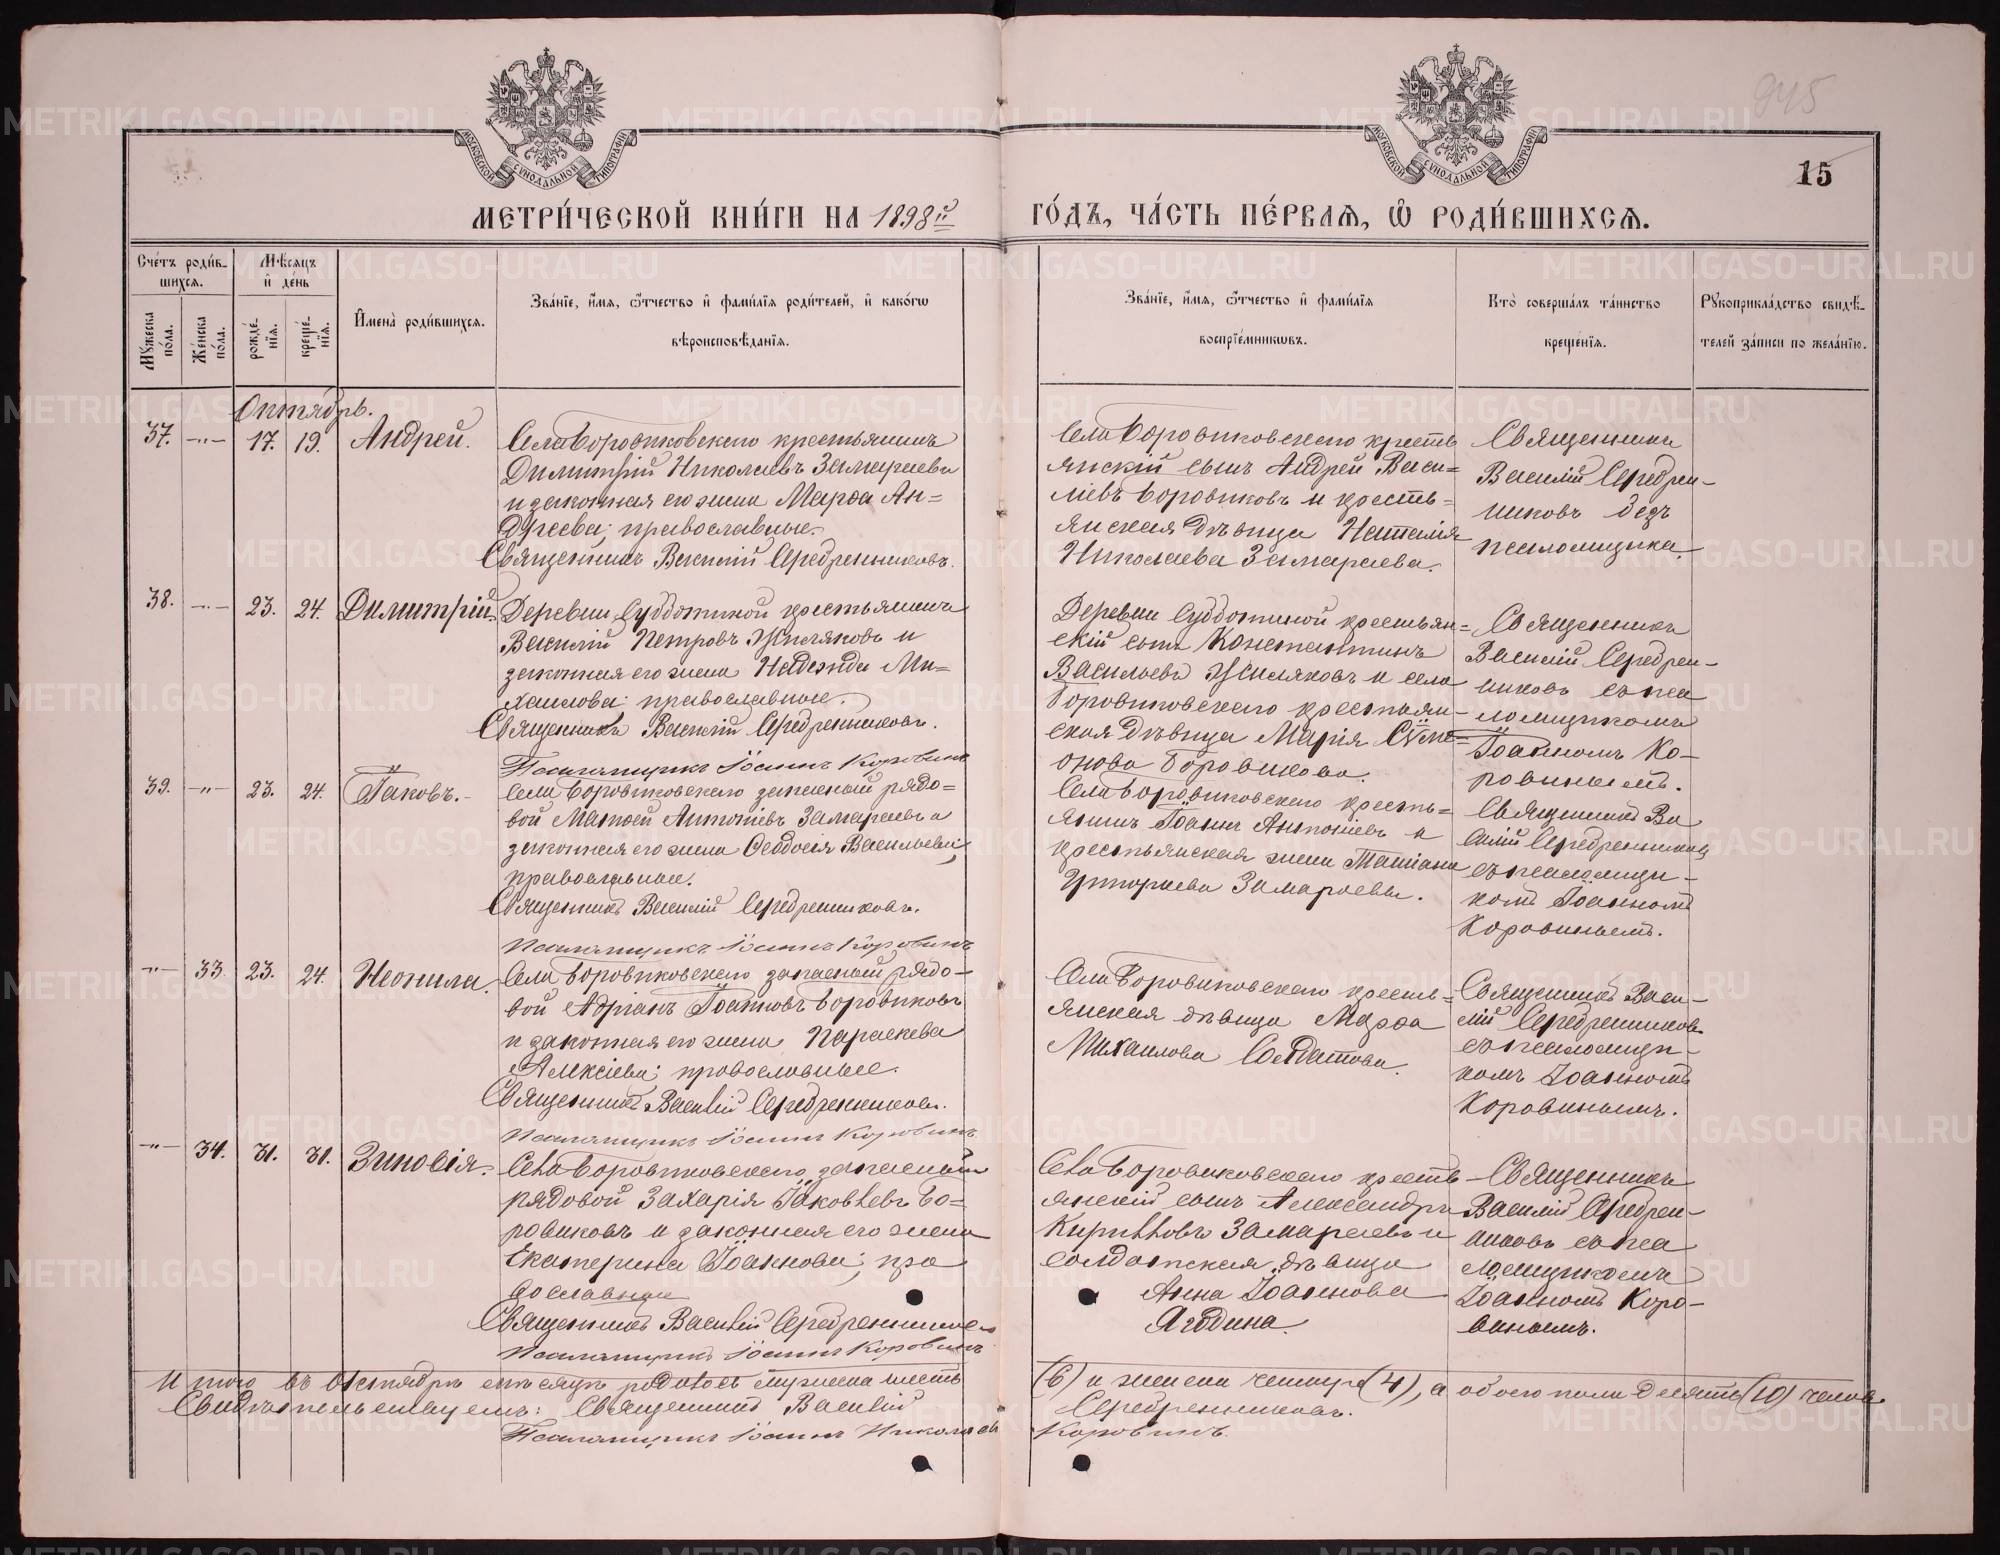 945
15
МОСКОВСКОЙ СѴНОДАЛЬНОЙ ТИПОГРАФІИ
МОСКОВСКОЙ СѴНОДАЛЬНОЙ ТИПОГРАФІИ
МЕТРИ́ЧЕСКОЙ КНИ́ГИ НА 1898й
ГО́ДЪ, ЧА́СТЬ ПЕ́РВАѦ, Ѡ҆ РОДИ́ВШИХСѦ.
Сче́тъ роди́в-
шихсѧ.
Мꙋ́жеска по́ла.
Же́нска по́ла.
Мѣ́сѧцъ и҆ де́нь
рожде́-
нїѧ.
креще́-
нїѧ.
И҆мена̀ роди́вшихсѧ.
Зва́нїе, и҆́мѧ, ѻ҆́тчество и҆ фами́лїѧ роди́телей, и҆ како́гѡ
вѣроисповѣ́данїѧ.
Зва́нїе, и҆́мѧ, ѻ҆́тчество и҆ фами́лїѧ
воспрїе́мникѡвъ.
Кто̀ соверша́лъ та́инство
креще́нїѧ.
Рꙋкоприкла́дство свидѣ́-
телей за́писи по жела́нїю.
Октябрь.
37. -"- 17. 19. Андрей.
Села Боровиковскаго крестьянинъ
Димитрій Николаевъ Замараевъ
и законная его жена Марѳа Ан=
дреева; православные.
Священникъ Василій Серебренниковъ.
Села Боровиковскаго кресть
янскій сынъ Андрей Васи=
ліевъ Боровиковъ и кресть=
янская дѣвица Наталія
Николаева Замараева.
Священникъ
Василій Серебрен-
никовъ безъ
псаломщика.
38. -"- 23. 24. Димитрій.
Деревни Субботиной крестьянинъ
Василій Петровъ Жиляковъ и
законная его жена Надежда Ми=
хаилова; православные.
Священникъ Василій Серебренниковъ.
Псаломщикъ Іоаннъ Коровинъ
Деревни Субботиной крестьян=
скій сынъ Константинъ
Васильевъ Жиляковъ и села
Боровиковскаго крестьян-
ская дѣвица Марія Сѵме=
онова Боровикова.
Священникъ
Василій Серебрен-
никовъ съ пса
ломщикомъ
Іоанномъ Ко-
ровинымъ.
39. -"- 23. 24. Іаковъ.
Села Боровиковскаго запасный рядо=
вой Матѳей Антоніевъ Замараевъ и
законная его жена Ѳеодосія Васильева;
православные.
Священникъ Василій Серебренниковъ.
Псаломщикъ Іоаннъ Коровинъ
Села Боровиковскаго кресть=
янинъ Іоаннъ Антоніевъ и
крестьянская жена Татіана
Григориева Замараевы.
Священникъ Ва
силій Серебренниковъ
съ псаломщи-
комъ Іоанномъ
Коровинымъ.
-"- 33. 23. 24. Неонила.
Села Боровиковскаго запасный рядо-
вой Адріанъ Іоанновъ Боровиковъ
и законная его жена Параскева
Алексіева; православные.
Священникъ Василій Серебренниковъ.
Псаломщикъ Іоаннъ Коровинъ
Села Боровиковскаго кресть=
янская дѣвица Марѳа
Михаилова Солдатова.
Священникъ Васи-
лій Серебренниковъ
съ псаломщи-
комъ Іоанномъ
Коровинымъ.
-"- 34. 31. 31. Зиновія.
Села Боровиковскаго запасный
рядовой Захарія Іаковлевъ Бо=
ровиковъ и законная его жена
Екатерина Іоаннова; пра
вославные
Священникъ Василій Серебренниковъ
Псаломщикъ Іоаннъ Коровинъ
Села Боровиковскаго кресть
янскій сынъ Александръ
Кирилловъ Замараевъ и
солдатская дѣвица
Анна Іоаннова
Ягодина.
Священникъ
Василій Серебрен-
никовъ съ пса
ломщикомъ
Іоанномъ Коро-
винымъ.
Итого въ Октябрѣ мѣсяцѣ родилось мужеска шесть (6) и женска четыре (4), а обоего пола десять (10) челов.
Свидѣтельствуемъ: Священникъ Василій Серебренниковъ.
Псаломщикъ Іоаннъ Николаевъ Коровинъ.
METRIKI.GASO-URAL.RU